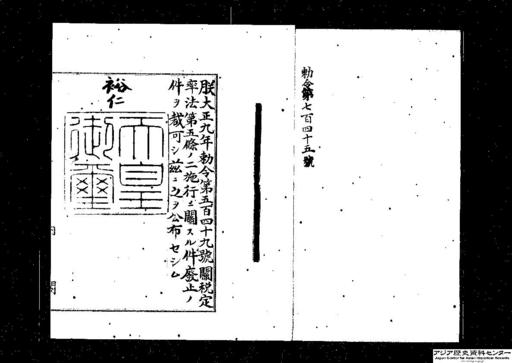 勅令第七百四十五號
朕大正九年勅令第五百四十九號關税定
率法第五條ノ二施行ニ關スル件廢止ノ
件ヲ裁可シ茲ニ之ヲ公布セシム
裕仁
天皇
御璽
内閣
アジア歴史資料センター
Japan Center for Asian Historical Records